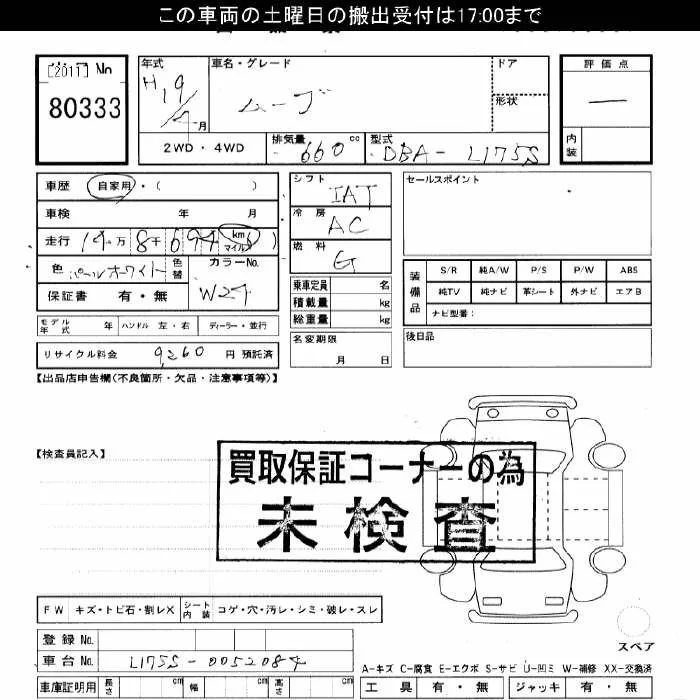 この車両の土曜日の搬出受付は17:00まで
[2011] No
80333
年式 車名・グレード ドア 評価点
H19/4月 ムーブ 形状 —
内装
2WD・4WD 排気量 660 cc 型式 DBA- L175S
車歴 自家用・( )
車検 年 月
走行 14万8千694 km マイル )
色 パールホワイト 色替 カラーNo. W24
保証書 有・無
シフト IAT
冷房 AC
燃料 G
乗車定員 名
積載量 kg
総重量 kg
セールスポイント
装備品 S/R 純A/W P/S P/W ABS
純TV 純ナビ 革シート 外ナビ エアB
ナビ型番：
モデル年式 年 ハンドル 左・右 ディーラー・並行
名変期限 月 日
後日品
リサイクル料金 9,260 円 預託済
【出品店申告欄(不良箇所・欠品・注意事項等)】
【検査員記入】
買取保証コーナーの為
未検査
FW キズ・トビ石・割レX シート内装 コゲ・穴・汚レ・シミ・破レ・スレ
スペア
登録 No.
車台 No. L175S-0052084
A-キズ C-腐食 E-エクボ S-サビ U-凹ミ W-補修 XX-交換済
車庫証明用 長さ cm 幅 cm 高さ cm
工具 有・無 ジャッキ 有・無